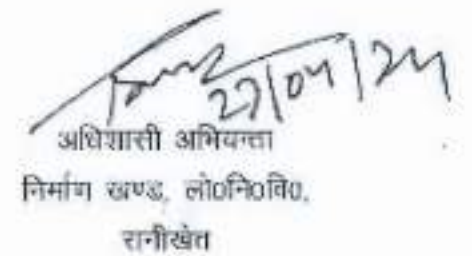 27/04/24
अधिशासी अभियन्ता
निर्माण खण्ड, लो0नि0वि0,
रानीखेत